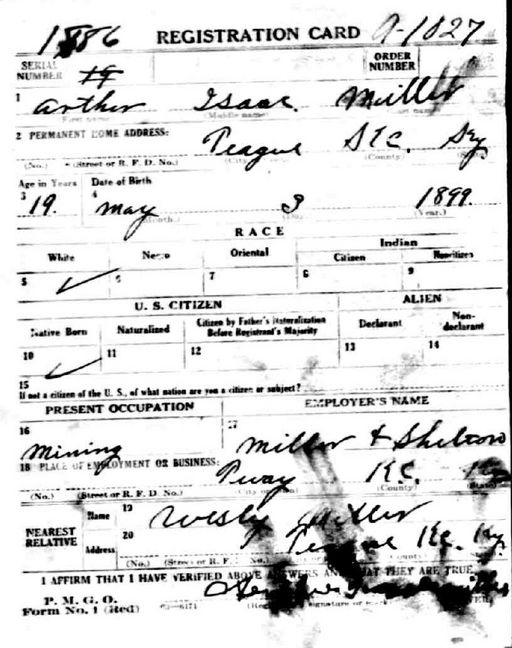 1886 REGISTRATION CARD A-1027
SERIAL NUMBER 19 ORDER NUMBER
1 Arther Isaac Miller
(Middle name)
2 PERMANENT HOME ADDRESS: Teague Ky
(No.) (Street or R. F. D. No.) (County)
Age in Years Date of Birth
3 19. 4 May 3 1899.
(Month.) (Year.)
RACE
White Negro Oriental Indian
Citizen Noncitizen
5 ✓ 6 7 8 9
U. S. CITIZEN ALIEN
Native Born Naturalized Citizen by Father's Naturalization Before Registrant's Majority Declarant Non-declarant
10 ✓ 11 12 13 14
15
If not a citizen of the U. S., of what nation are you a citizen or subject?
PRESENT OCCUPATION EMPLOYER'S NAME
16 Mining 17 Miller & Shelton
18 PLACE OF EMPLOYMENT OR BUSINESS:
(No.) (Street or R. F. D. No.) (County) (State)
NEAREST RELATIVE Name 19 Wesly Miller
Address 20 Teague Ky
(No.) (Street or R. F.
I AFFIRM THAT I HAVE VERIFIED ABOVE ANSWERS AND THAT THEY ARE TRUE
P. M. G. O.
Form No. 1 (Red) (signature or mark)